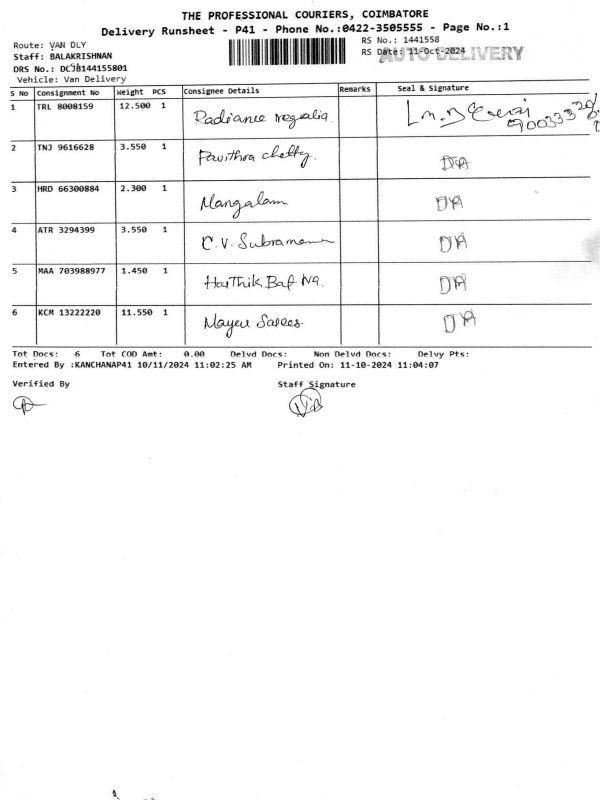 THE PROFESSIONAL COURIERS, COIMBATORE
Delivery Runsheet - P41 - Phone No.:0422-3505555 - Page No.:1
Route: VAN DLY
RS No.: 1441558
Staff: BALAKRISHNAN
RS Date: 11-Oct-2024
AUTO DELIVERY
DRS No.: DCJB144155801
Vehicle: Van Delivery
S No Consignment No Weight PCS Consignee Details Remarks Seal & Signature
1 TRL 8008159 12.500 1 Radiance regalia.
2 TNJ 9616628 3.550 1 Pavithra chetty. DA
3 HRD 66300884 2.300 1 Mangalam DA
4 ATR 3294399 3.550 1 C.V. Subramana DA
5 MAA 703988977 1.450 1 DA
6 KCM 13222220 11.550 1 DA
Tot Docs: 6 Tot COD Amt: 0.00 Delvd Docs: Non Delvd Docs: Delvy Pts:
Entered By :KANCHANAP41 10/11/2024 11:02:25 AM Printed On: 11-10-2024 11:04:07
Verified By Staff Signature